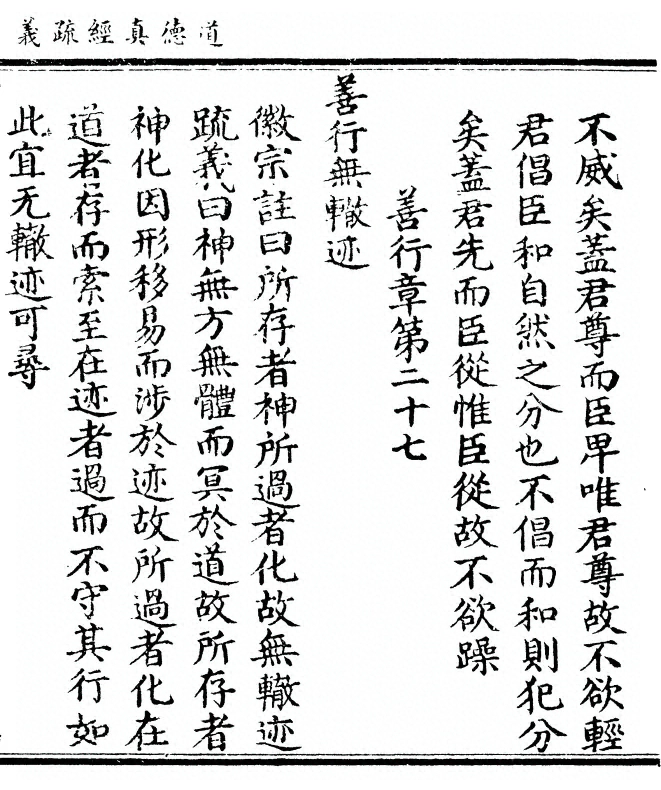 道德真經疏義
不威矣蓋君尊而臣卑唯君尊故不欲輕
君倡臣和自然之分也不倡而和則犯分
矣蓋君先而臣從惟臣從故不欲躁
善行章第二十七
善行無轍迹
徽宗註曰所存者神所過者化故無轍迹
疏義曰神無方無體而冥於道故所存者
神化因形移易而涉於迹故所過者化在
道者存而索至在迹者過而不守其行如
此宜无轍迹可尋